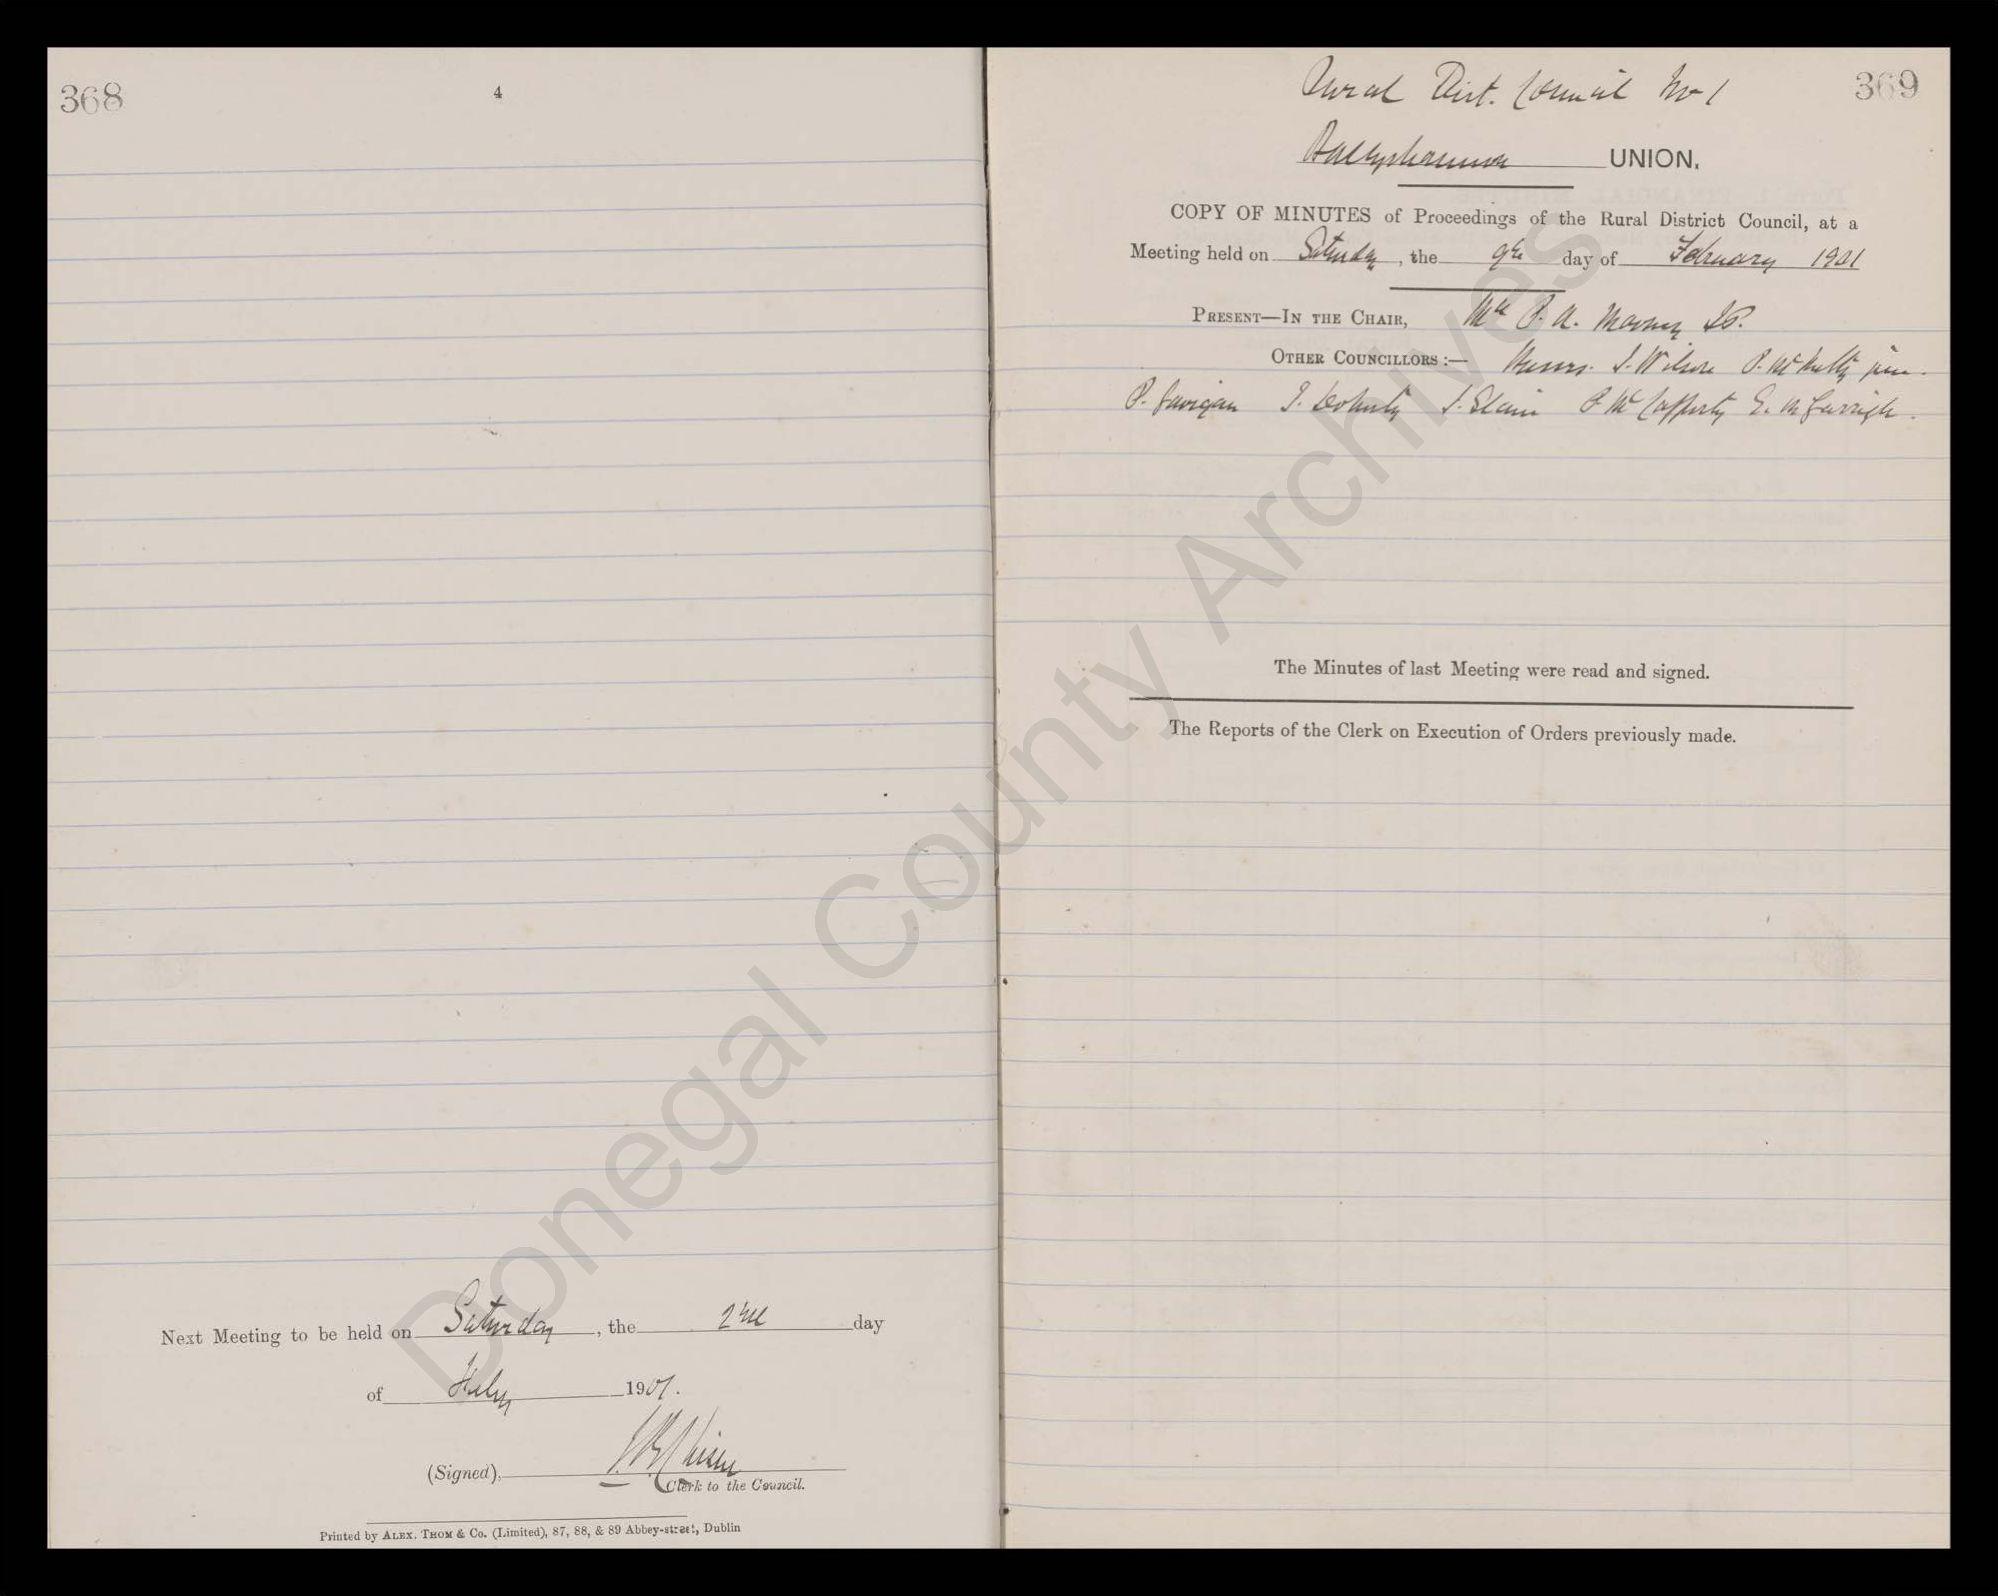 368
4
Next Meeting to be held on Saturday, the 2nd day
of Feby 1901.
(Signed),
Clerk to the Council.
Printed by ALEX. THOM & Co. (Limited), 87, 88, & 89 Abbey-street, Dublin
369
Rural Dist. Council No 1
Ballyshannon UNION.
COPY OF MINUTES of Proceedings of the Rural District Council, at a
Meeting held on Saturday, the 9th day of February 1901
PRESENT—IN THE CHAIR, Mr P. A. Mooney J.P.
OTHER COUNCILLORS :— Messrs. J. Wilson P. McNulty jun.
P. Gavigan J. Doherty J. Slain P McCafferty E. McGarrigle.
The Minutes of last Meeting were read and signed.
The Reports of the Clerk on Execution of Orders previously made.
Donegal County Archives